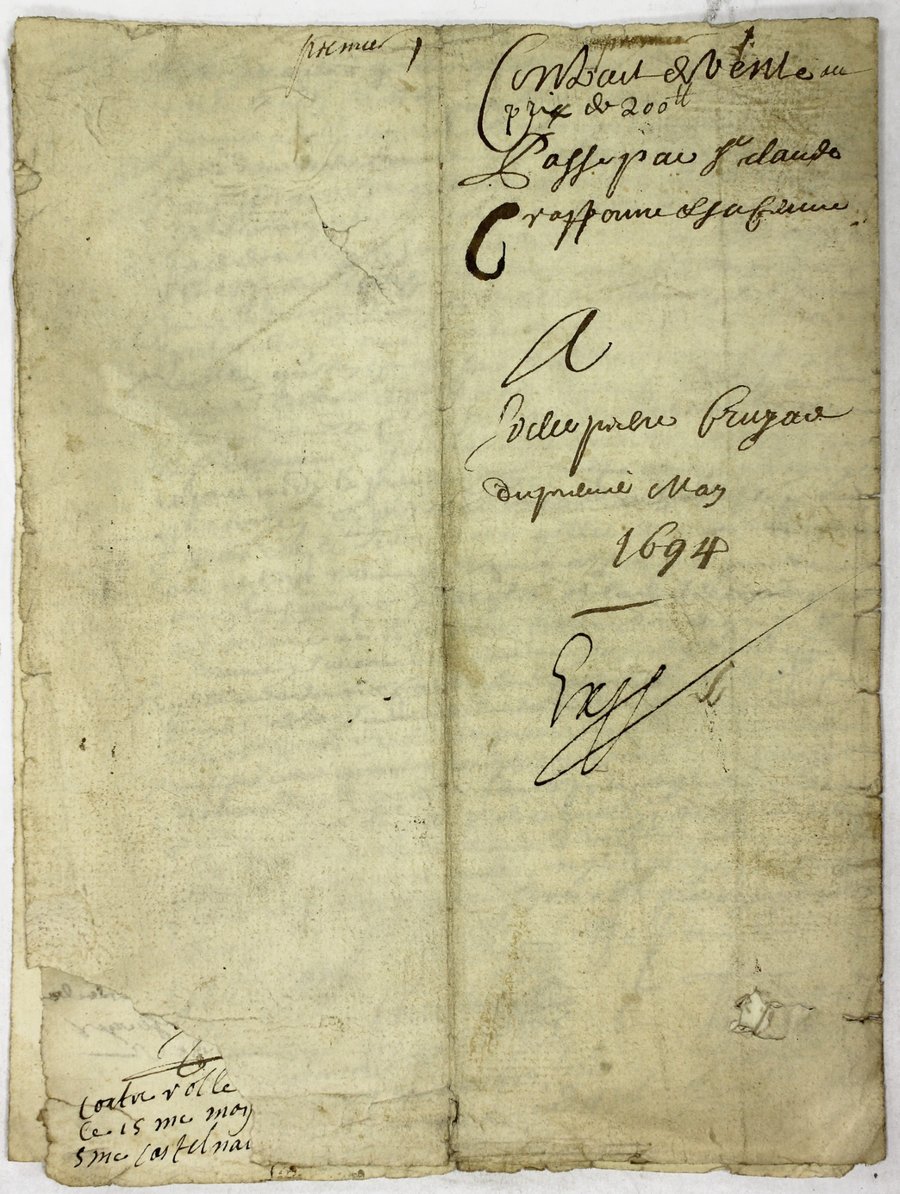 premier 1
premier 1
Contrait de Vente au
prix de 200ll
Passe par Sr claude
Crapponne & sa femme
A
pierre Cruzac
du premier May
1694
Exp
contre rolle
Le 15 me may
5 me Castelnau